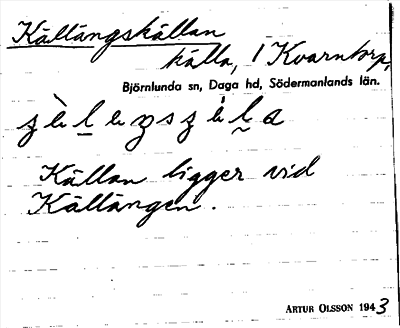 Källängskällan
källa, 1 Kvarntorp,
Björnlunda sn, Daga hd, Södermanlands län.
Källan ligger vid
Källängen.
ARTUR OLSSON 1943